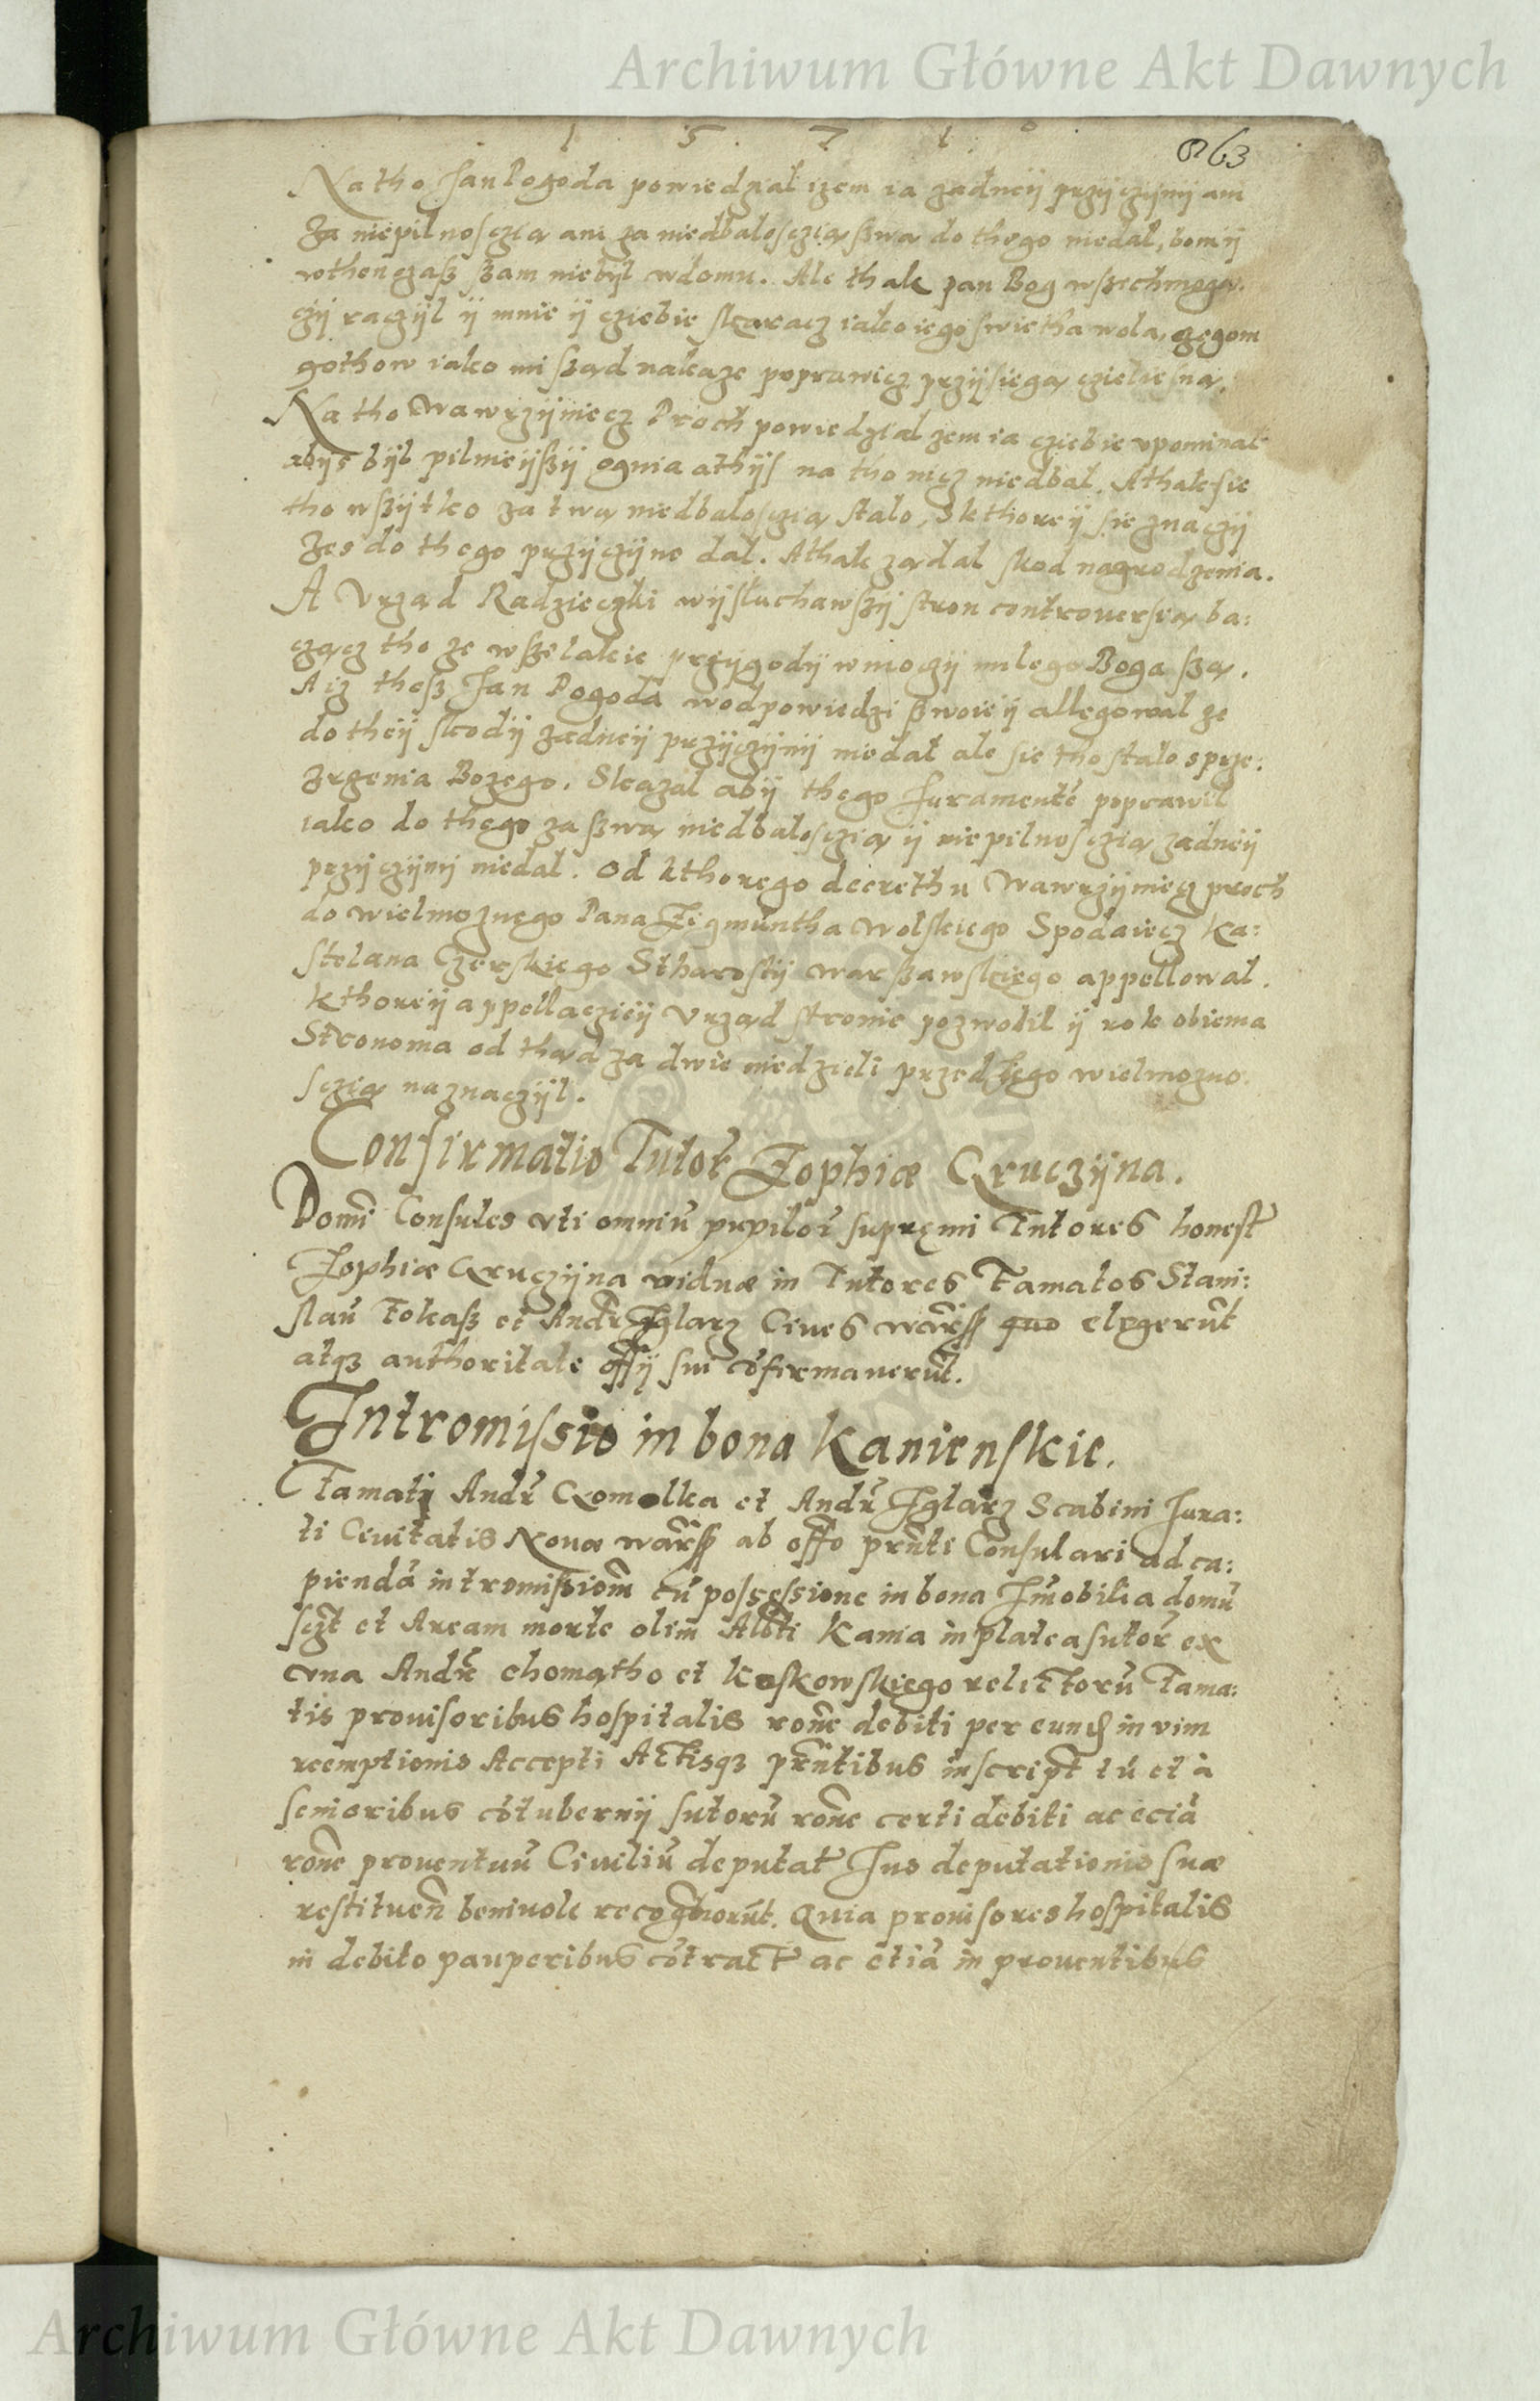 Archiwum Główne Akt Dawnych
1 5 7 1
63
Na tho Jan Pogoda powiedzial izem ia zadneÿ przÿczÿnÿ ani
Za niepilnosczią ani za niedbalosczią sßwą do thego niedal, bom ÿ
wthenczaß ßam niebÿl wdomu. Ale thak pan Bog wßechmogą.
czÿ raczÿl ÿ mnie ÿ cziebie skaracz iako iego swietha wola, czegom
gothow iako mi ßąd nakaze poprawicz przÿsiegą czieliesną.
Na tho Wawrzÿniecz Proch powiedzial zem ia cziebie vpominal
abÿs bÿl pilnieÿßÿ ognia athÿs na tho nicz niedbal. Athak sie
tho wßÿtko za twą niedbalosczią stalo, Skthoreÿ sie znaczÿ
Zes do thego przÿczÿne dal. Athak ządal skod nagrodzenia.
A Vrząd Radzieczki wÿsluchawßÿ stron controuersią ba:
czącz tho ze wßelakie przÿgodÿ wmoczÿ milego Boga ßą.
A iz theß Jan Pogoda wodpowiedzi ßwoieÿ allegowal ze
do theÿ skodÿ zadneÿ przÿczÿnÿ niedal ale sie tho stalo sprze:
Zrzenia Bozego. Skazal abÿ thego Juramente poprawil
iako do thego za ßwą niedbalosczią ÿ niepilnosczią zadneÿ
przÿczÿnÿ niedal. Od kthorego decrethu Wawrzÿniecz proch
do wielmoznego Pana Zigmuntha Wolskiego Spodaiecz Ka:
stelana Czerskiego Stharostÿ Warßawskiego appellowal.
kthoreÿ appellaczieÿ Vrząd stronie pozwolil ÿ rok obiema
Stronoma od thąd za dwie niedzieli przed Jego wielmozno
sczią naznaczÿl.
Confirmatio Tutor̃ Zophiæ Gruczÿna.
Domĩ Consules vti omniũ pupilor̃ supremi Tutores honest̃
Zophiæ Gruczÿna viduæ in Tutores Famatos Stani:
slaũ Tokaß et Andr̃ Jglarz Ciues warß quo elegerũt
atqз authoritate offÿ sui cõfirmauerũt.
Intromissio in bona Kanienskie.
Famatj Andr̃ Gromolka et Andr̃ Jglarz Scabini Jura:
ti Ciuitatis Nouæ warß ab offo prñti Consulari ad ca:
piendã intromißiom̃ tũ possessione in bona Jm̃obilia domũ
sczt et Aream morte olim Albti Kania in platea sutor̃ ex
vna Andr̃ chomątho et Koskowskiego relictorũ Fama:
tis prouisoribus hospitalis rone debiti per eund in vim
reemptionis Accepti Actisqз prñtibus inscript̃ tũ et à
senioribus cõtubernÿ sutorũ rone certi debiti ac eciã
rone prouentuũ Ciuiliũ deputat̃ Jus deputationis suæ
restituen̄ beniuole recognorũt. Quia prouisores hospitalis
in debito pauperibus cõtract̃ ac etiã in prouentibus
Archiwum Główne Akt Dawnych